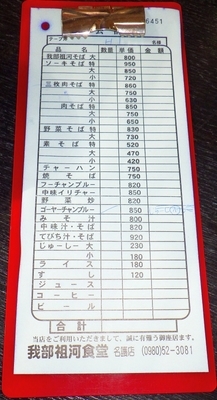 6451
テーブル
名様
品名 数量 単価 金額
我部祖河そば 大 800
ソーキそば 特 950
大 850
小 720
三枚肉そば 特 850
大 750
小 630
肉そば 特 850
大 750
小 650
野菜そば 特 830
大 730
素そば 特 520
大 470
小 420
チャーハン 750
焼そば 750
フーチャンプルー 820
中味イリチャー 850
野菜炒 820
ゴーヤーチャンプルー 850
みそ汁 800
中味汁・そば 820
てびち汁・そば 920
じゅーしー 大 230
小 180
ライス 180
すし 120
ジュース
コーヒー
ビール
合計
当店をご利用いただきまして、誠に有難う御座居ます。
我部祖河食堂 名護店 (0980)52-3081